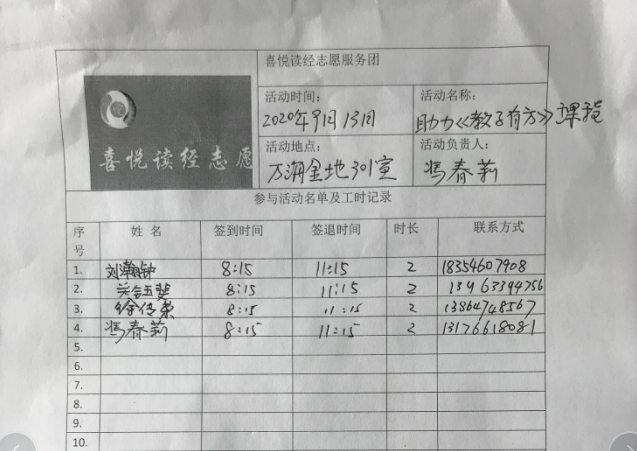 喜悦读经志愿服务团
喜悦读经志愿
活动时间：
2020年9月13日
活动名称：
助力《教子有方》课程
活动地点：
万润金地301室
活动负责人：
冯春莉
参与活动名单及工时记录
序号 姓名 签到时间 签退时间 时长 联系方式
1. 8:15 11:15 2 18354607908
2. 8:15 11:15 2 13963394756
3. 徐传荣 8:15 11:15 2 13864748567
4. 冯春莉 8:15 11:15 2 13176618081
5.
6.
7.
8.
9.
10.